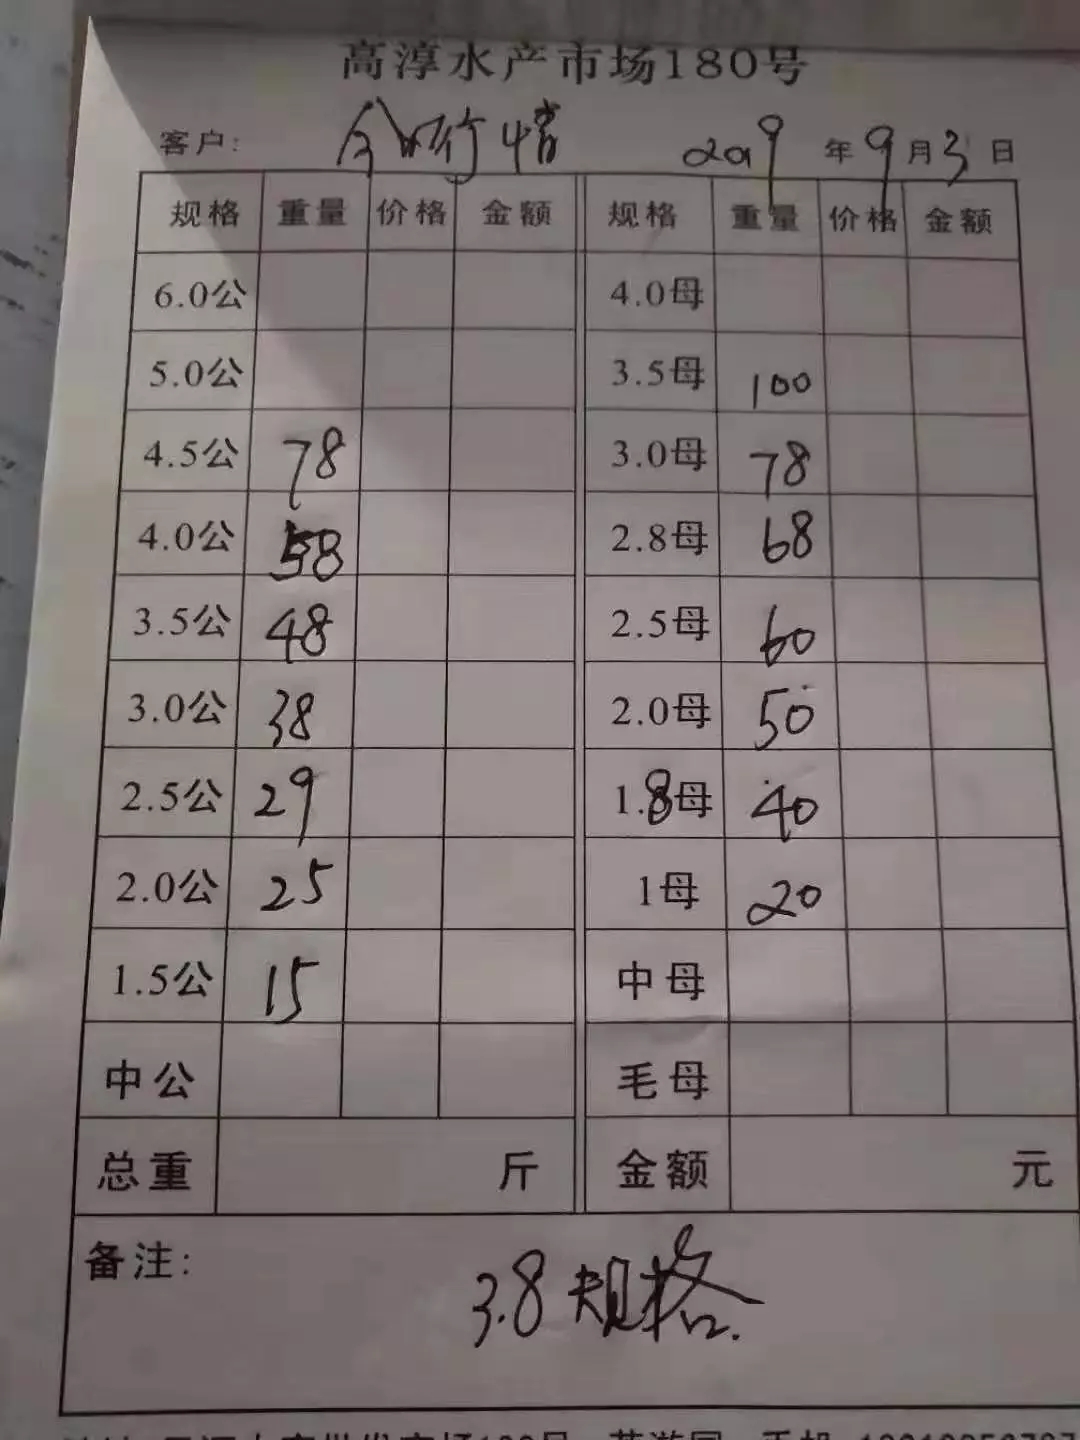 高淳水产市场180号
客户: 今日行情 2019年9月3日
规格 重量 价格 金额 规格 重量 价格 金额
6.0公 4.0母
5.0公 3.5母 100
4.5公 78 3.0母 78
4.0公 58 2.8母 68
3.5公 48 2.5母 60
3.0公 38 2.0母 50
2.5公 29 1.8母 40
2.0公 25 1母 20
1.5公 15 中母
中公 毛母
总重 斤 金额 元
备注:
3.8规格.